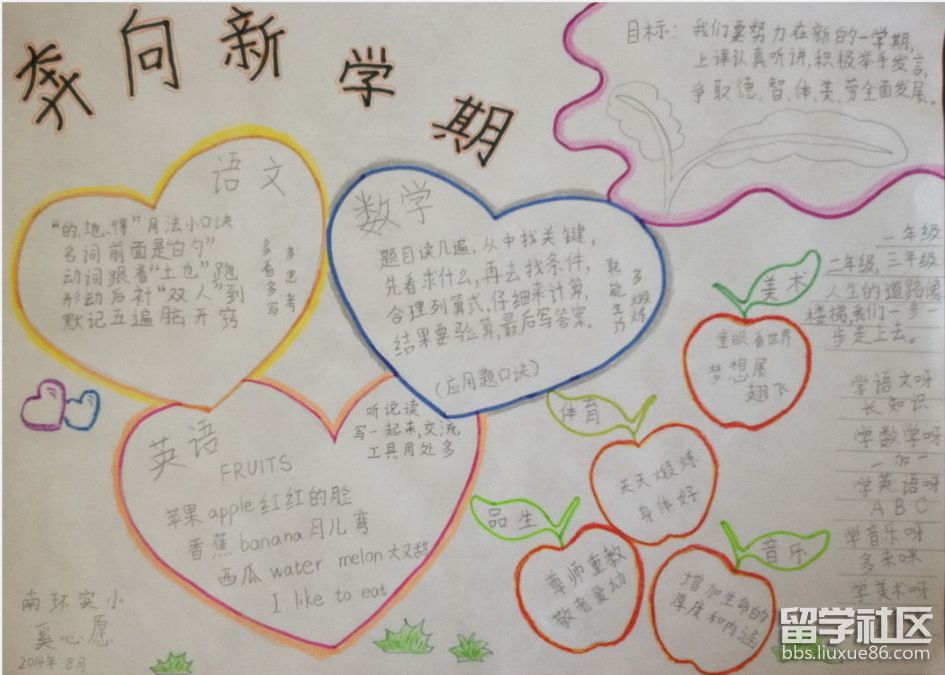 奔向新学期
目标：我们要努力在新的一学期,
上课认真听讲,积极举手发言,
争取德、智、体、美、劳全面发展。
语文
“的、地、得”用法小口诀
名词前面是“白勺”
动词跟着“土也”跑
形动后补“双人”到
默记五遍脑开窍
多看多写
多思考
数学
题目读几遍,从中找关键,
先看求什么,再去找条件,
合理列算式,仔细来计算,
结果要验算,最后写答案。
(应用题口诀)
聪能生巧
多煅炼
英语
FRUITS
苹果 apple 红红的脸
香蕉 banana 月儿弯
西瓜 water melon 大又甜
I like to eat
听说读
写一起来,交流
工具用处多
美术
童眼看世界
梦想展
翅飞
体育
天天煅炼
身体好
品生
尊师重教
敬老爱幼
音乐
增加生命的
厚度和内涵
一年级
二年级,三年级
人生的道路像
楼梯,我们一步一
步走上去。
学语文呀
长知识
学数学呀
一加一
学英语呀
A B C
学音乐呀
多来咪
学美术呀
南环实小
奚心愿
2014年 8月
留学社区
bbs.liuxue86.com